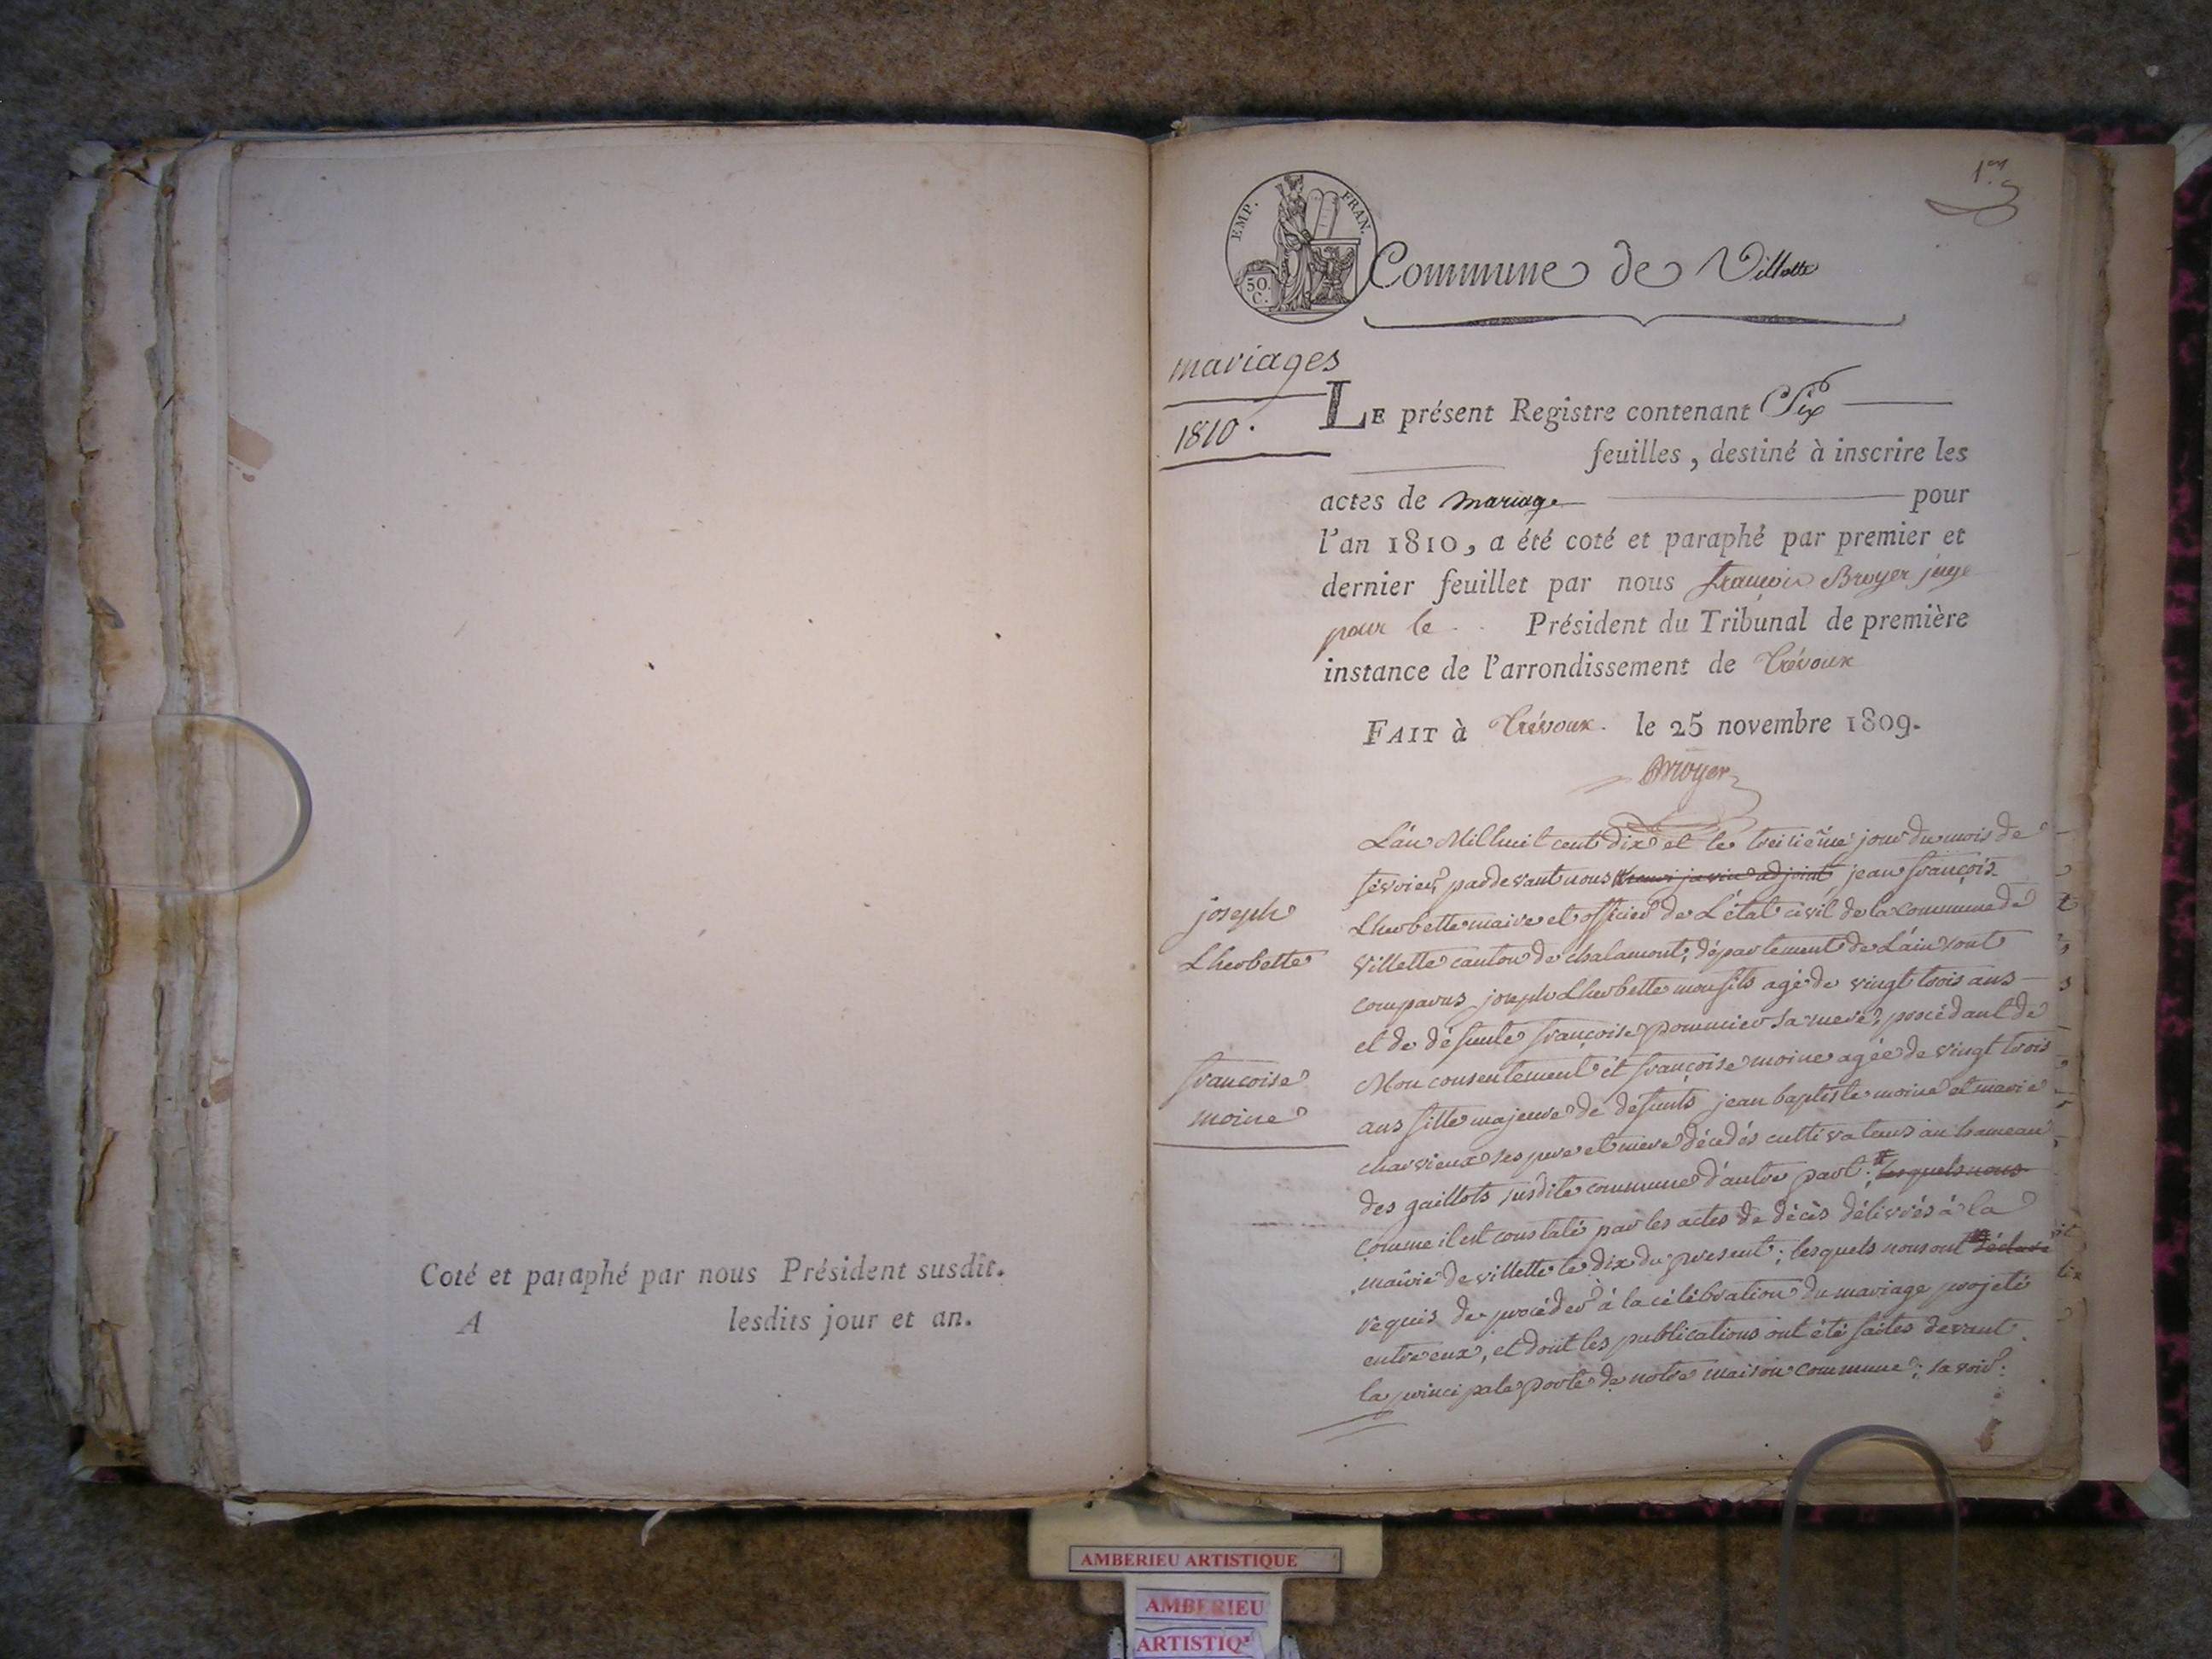 Coté et paraphé par nous Président susdit.
A lesdits jour et an.
1er
EMP. FRAN.
50.
C.
Commune de Villette
mariages
1810.
LE présent Registre contenant Six
feuilles, destiné à inscrire les
actes de mariage pour
l'an 1810, a été coté et paraphé par premier et
dernier feuillet par nous françois Broyer juge
pour le Président du Tribunal de première
instance de l'arrondissement de Trévoux
FAIT à Trévoux. le 25 novembre 1809.
Broyer
joseph
Lherbette
francoise
moine
L'an Mil huit cent dix et le treizième jour du mois de
février, pardevant nous adjoint jean françois
Lherbette maire et officier de L'état civil de la commune de
Villette canton de chalamont, département de L'ain sont
comparus joseph Lherbette mon fils agé de vingt trois ans
et de défunte françoise pommier sa mere, procédant de
Mon consentement et françoise moine agée de vingt trois
ans fille majeure de defunts jean baptiste moine et marie
charvieux ses pere et mere décédés cultivateurs au hameau
des gaillots susdite commune d'autre part; lesquels nous
comme il est constaté par les actes de décès délivrés à la
mairie de villette le dix du present; lesquels nous ont déclaré
requis de procéder à la célébration du mariage projeté
entre eux, et dont les publications ont été faites devant
la principale porte de notre maison commune; savoir:
AMBERIEU ARTISTIQUE
AMBERIEU
ARTISTIQ